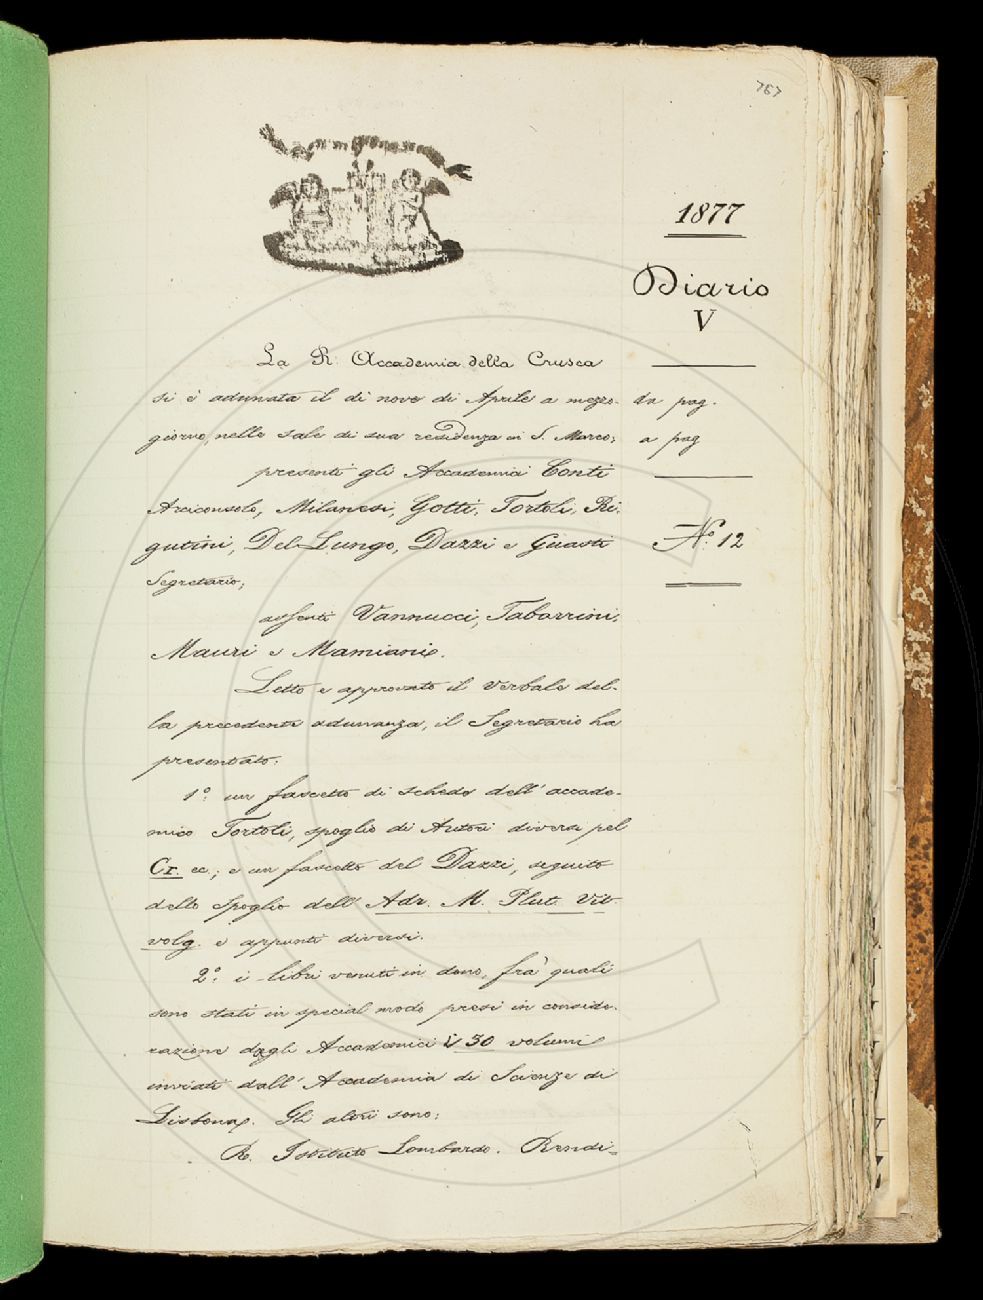 767
1877
Diario
V
La R. Accademia della Crusca
si è adunata il dì nove di Aprile a mezzo-
giorno, nelle sale di sua residenza in S. Marco;
da pag.
a pag
presenti gli Accademici Conti
Arciconsolo, Milanesi, Gotti, Tortoli, Ri-
gutini, Del-Lungo, Dazzi e Guasti
Segretario;
N.º 12
assenti Vannucci, Tabarrini,
Mauri e Mamiani.
Letto e approvato il verbale del-
la precedente adunanza, il Segretario ha
presentato:
1º: un fascetto di schede dell'accade-
mico Tortoli, spoglio di Autori diversi pel
Cr. ec.; e un fascetto del Dazzi, seguito
dello spoglio dell'Adr. M. Plut. Vit
volg. e appunti diversi.
2º: i libri venuti in dono, fra' quali
sono stati in special modo presi in conside-
razione dagli Accademici i 30 volumi
inviati dall'Accademia di Scienze di
Lisbona. Gli altri sono:
R. Istituto Lombardo. Rendi=